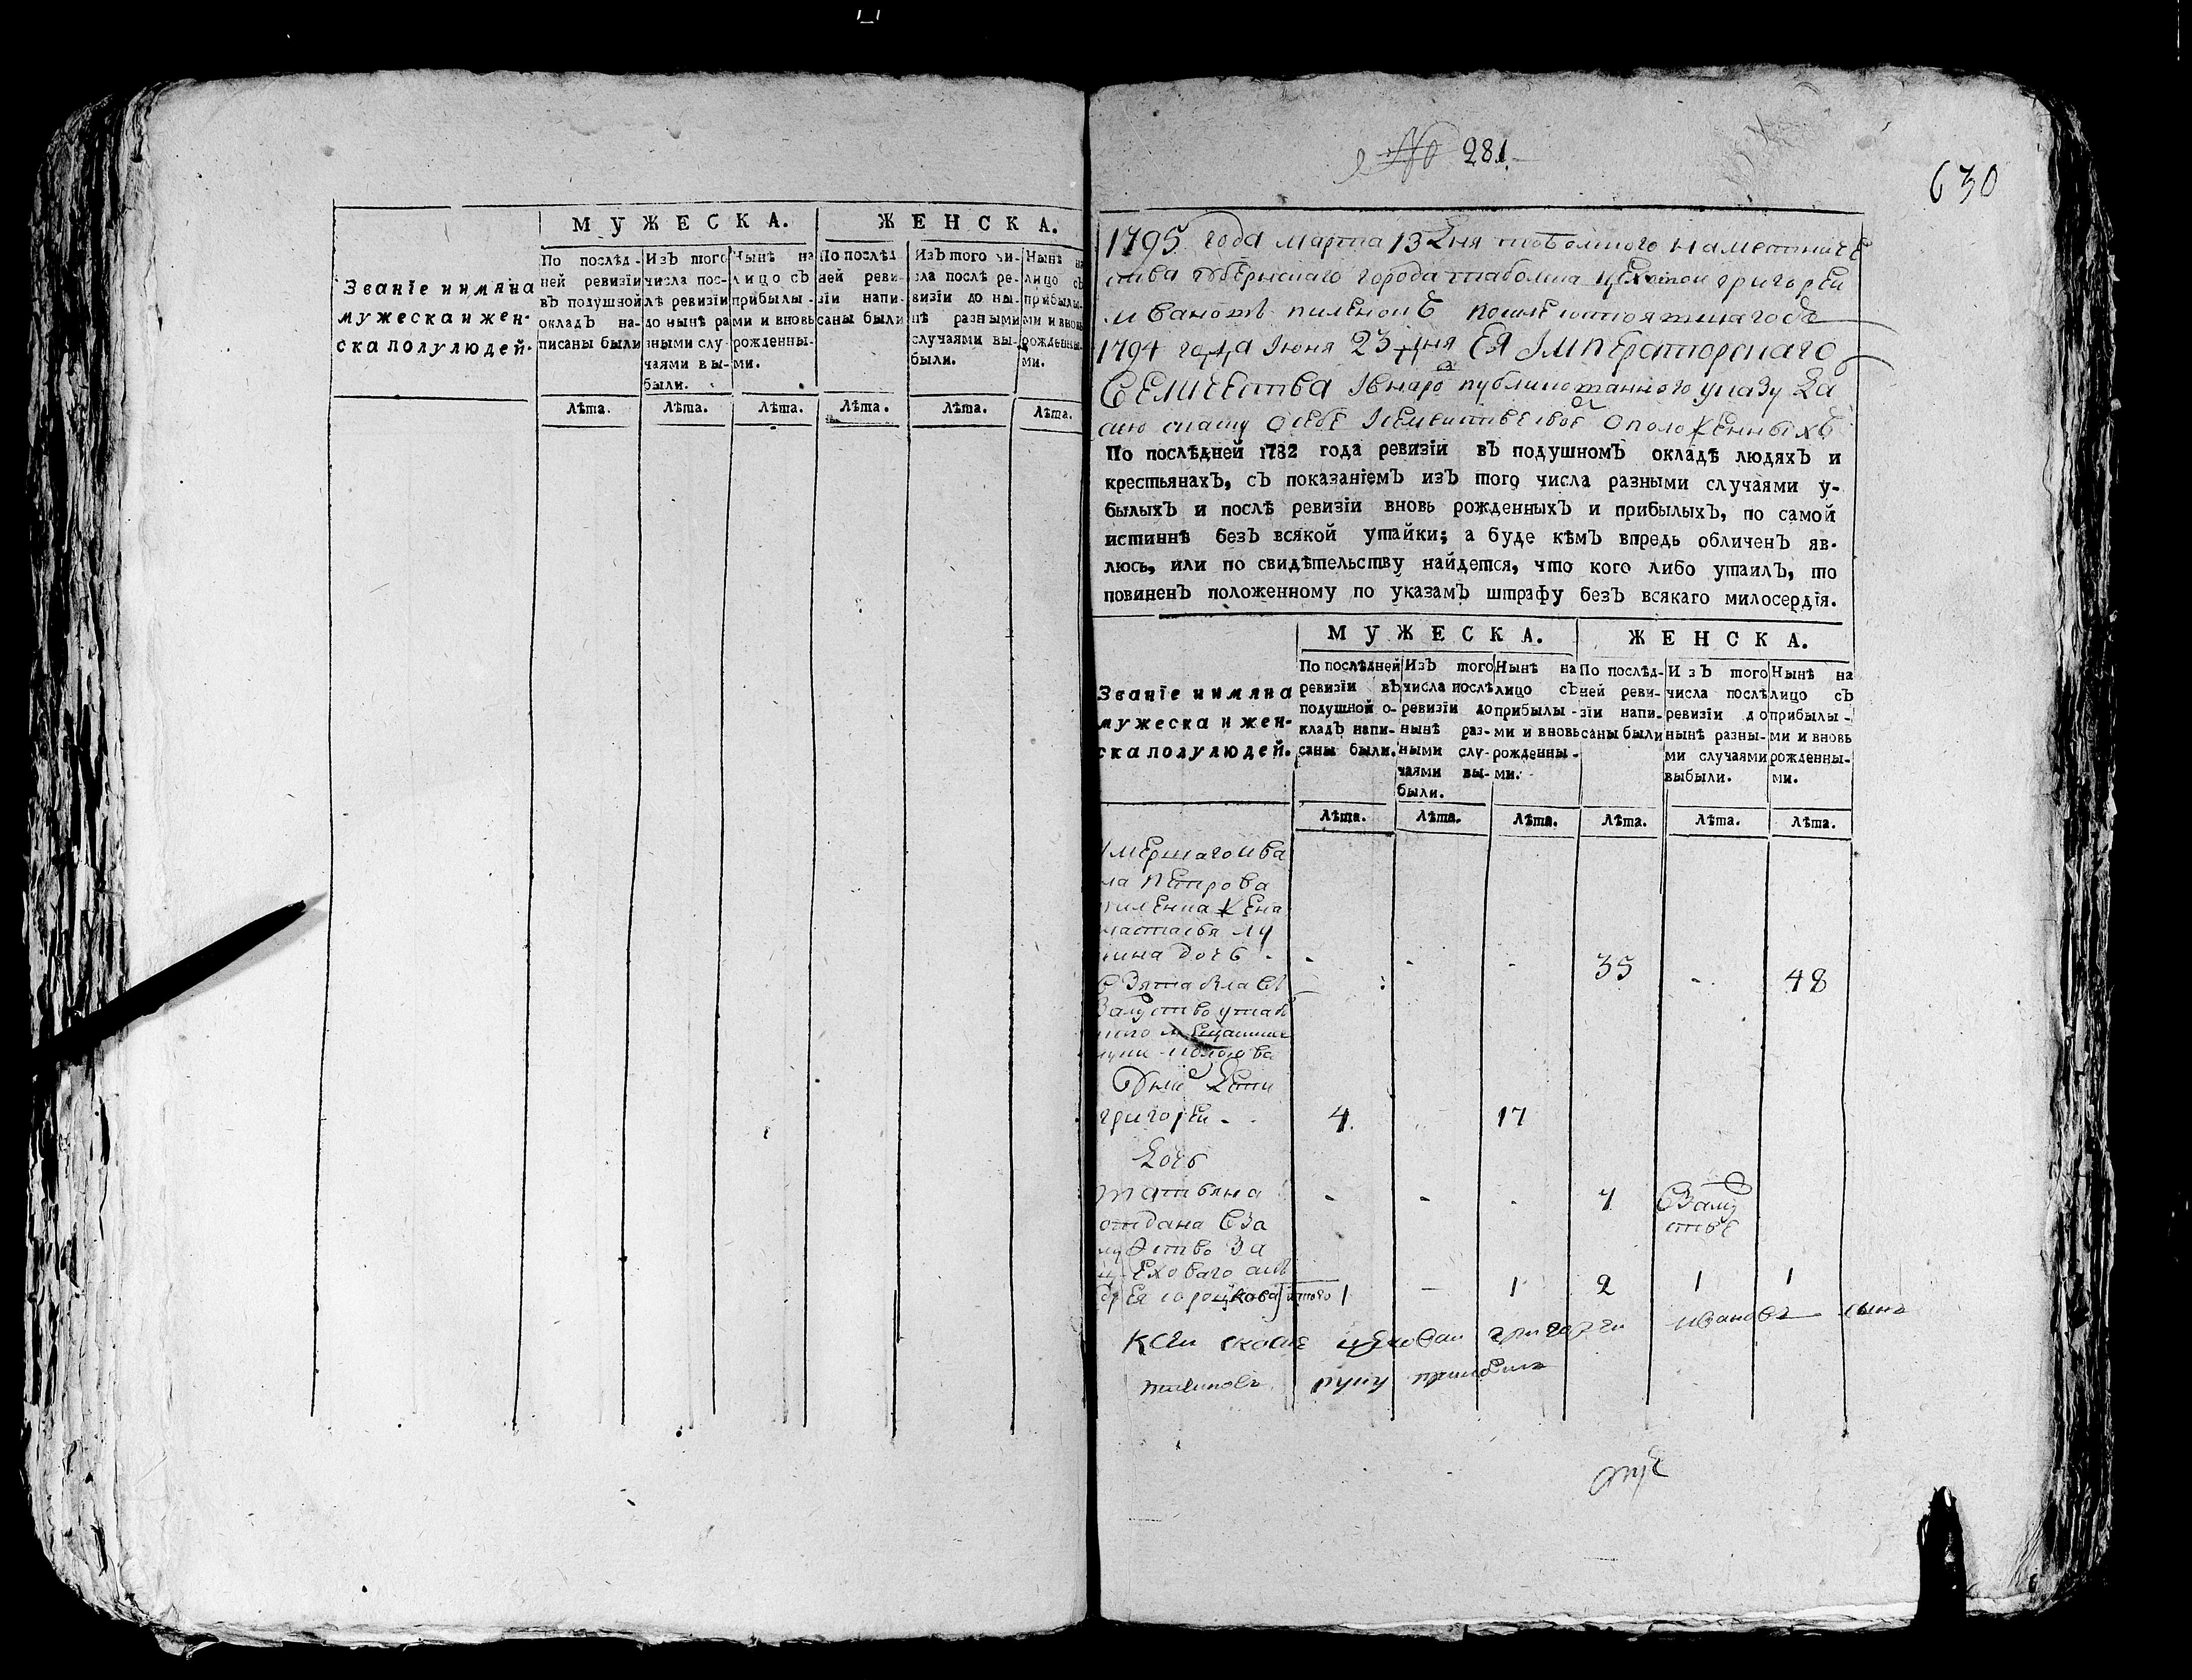 МУЖЕСКА. ЖЕНСКА.
Званіе и имяна
мужеска и жен-
ска полу людей.
По послѣд-
ней ревизіи
въ подушной
окладъ на-
писаны были
Изъ того
числа пос-
лѣ ревизіи
до нынѣ ра
зными слу-
чаями вы-
были.
Нынѣ на
лицо съ
прибылы-
ми и вновь
рожденны-
ми.
По послѣд
ней реви-
зіи напи-
саны были
Изъ того чи-
сла послѣ ре-
визіи до ны-
нѣ разными
случаями вы-
были.
Нынѣ на
лицо съ
прибылы-
ми и вновь
рожденны-
ми.
Лѣта. Лѣта. Лѣта. Лѣта. Лѣта. Лѣта.
№ 281
630
1795 года марта 13 дня тобольского наместниче
ства губернскаго города тобольска цеховой григорей
ивановъ пиленковъ после состоятшагося
1794 года Июня 23 дня ЕЯ Императорскаго
Величества всенародно публикованного указу даю
сию скаску о себе и семействе своем о положенныхъ
По послѣдней 1782 года ревизіи въ подушномъ окладѣ людяхъ и
крестьянахъ, съ показаніемъ изъ того числа разными случаями у-
былыхъ и послѣ ревизіи вновь рожденныхъ и прибылыхъ, по самой
истиннѣ безъ всякой утайки; а буде кѣмъ впредь обличенъ яв-
люсь, или по свидѣтельству найдется, что кого либо утаилъ, то
повиненъ положенному по указамъ штрафу безъ всякаго милосердія.
МУЖЕСКА. ЖЕНСКА.
Званіе и имяна
мужеска и жен-
ска полу людей.
По послѣдней
ревизіи въ
подушной о-
кладъ напи-
саны были.
Изъ того
числа послѣ
ревизіи до
нынѣ раз-
ными слу-
чаями вы-
были.
Нынѣ на
лицо съ
прибылы-
ми и вновь
рожденны-
ми.
По послѣд-
ней реви-
зіи напи-
саны были
Изъ того
числа послѣ
ревизіи до
нынѣ разны-
ми случаями
выбыли.
Нынѣ на
лицо съ
прибылы-
ми и вновь
рожденны-
ми.
Лѣта. Лѣта. Лѣта. Лѣта. Лѣта. Лѣта.
умершаго ива
на петрова
жена
настасья лу
кина дочь - - - - 35 - 48
взята
дети
григорей - 4 17
дочь
татьяна - - - 7 взаму
стве
отдана вза
мужство за
цеховаго анд
рея итого 1 - 1 2 1 1
К сей скаске цеховой григорей ивановъ сынъ
руку приложилъ